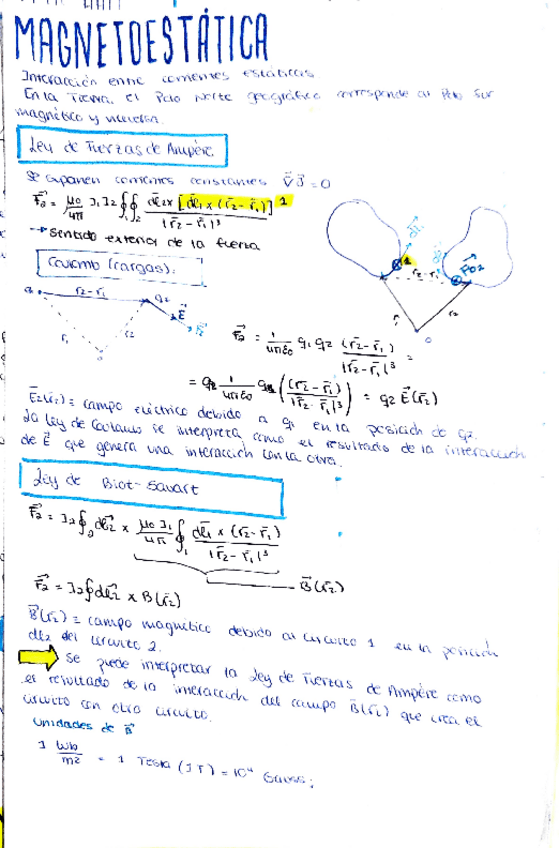 MAGNETOESTÁTICA
Interacción entre corrientes estáticas
En la Tierra, el Polo Norte geográfico corresponde al Polo Sur
magnético y viceversa.
Ley de Fuerzas de Ampère
Se suponen corrientes constantes ∇⃗J⃗ = 0
F⃗₂ = μ₀/4π I₁ I₂ ∮₁ ∮₂ dl⃗₂ x [dl⃗₁ x (r⃗₂ - r⃗₁)] / |r⃗₂ - r⃗₁|³
Sentido exterior de la fuerza
Coulomb (cargas):
q₁ r⃗₂ - r⃗₁ q₂
E⃗
r₁ r₂
0
r₂ - r₁
F⃗₀₂
r₂
0
F⃗₂ = 1/4πε₀ q₁ q₂ (r⃗₂ - r⃗₁) / |r⃗₂ - r⃗₁|³ =
= q₂ 1/4πε₀ q₁ ((r⃗₂ - r⃗₁) / |r⃗₂ - r⃗₁|³) = q₂ E⃗(r⃗₂)
E⃗₂(r₂) = campo eléctrico debido a q₁ en la posición de q₂.
La ley de Coulomb se interpreta como el resultado de la interacción
de E⃗ que genera una interacción con la otra.
Ley de Biot-Savart
F⃗₂ = I₂ ∮₂ dl⃗₂ x μ₀ I₁/4π ∮₁ dl⃗₁ x (r⃗₂ - r⃗₁) / |r⃗₂ - r⃗₁|³
B⃗(r⃗₂)
F⃗₂ = I₂ ∮ dl⃗₂ x B(r⃗₂)
B⃗(r⃗₂) = campo magnético debido al circuito 1 en la posición
dl₂ del circuito 2.
Se puede interpretar la Ley de Fuerzas de Ampère como
el resultado de la interacción del campo B⃗(r₂) que crea el
circuito con otro circuito.
Unidades de B⃗
1 Wb/m² = 1 Tesla (1 T) = 10⁴ Gauss;